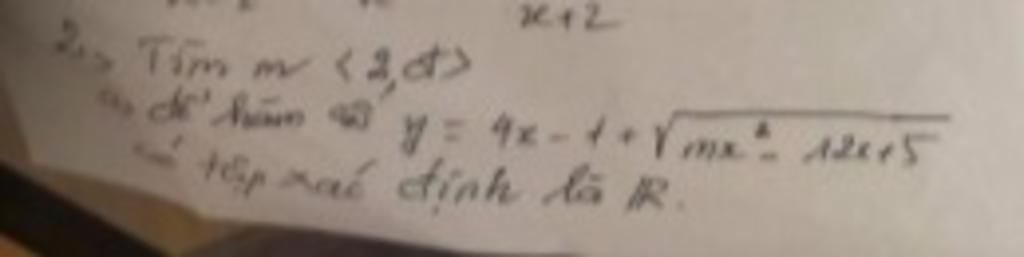 x+2
2, Tìm m <2,đ>
a, để hàm số y = 4x - 1 + √mx² - 12x+5
có tập xác định là ℝ.